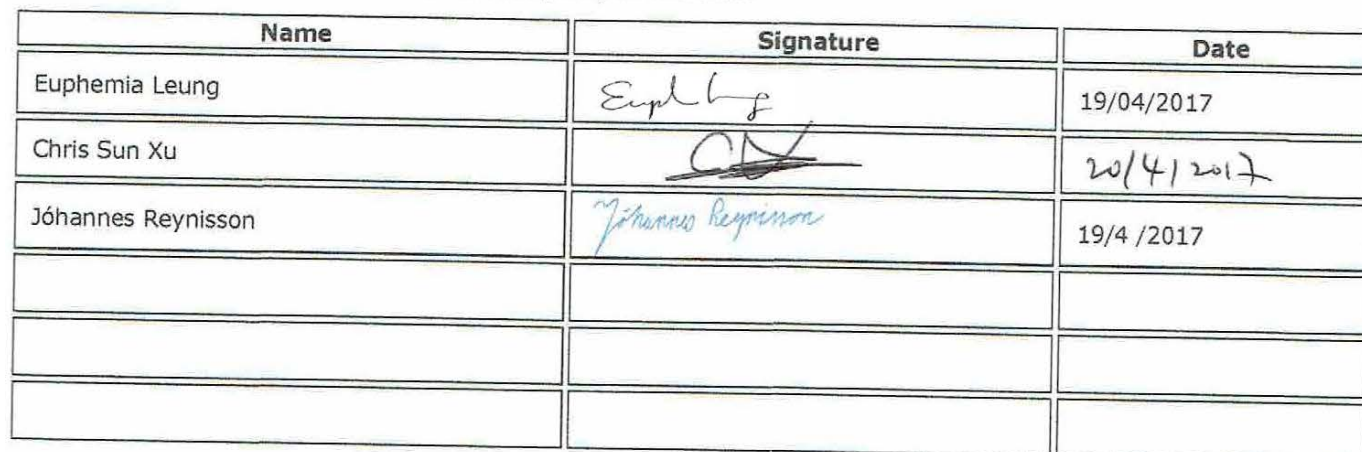 Name Signature Date
Euphemia Leung 19/04/2017
Chris Sun Xu 20/4/2017
Jóhannes Reynisson Jóhannes Reynisson 19/4 /2017